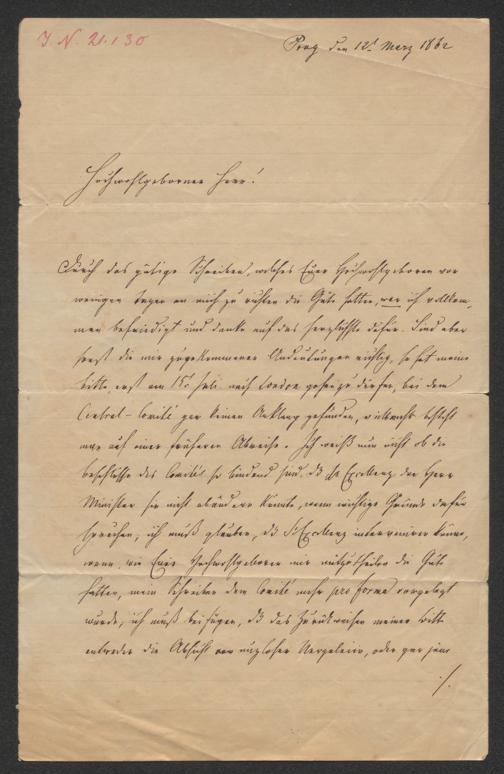 I. N. 21.130
Prag den 12t März 1862
Hochwohlgeborner Herr!
Durch das gütige Schreiben, welches Euer Hochwohlgeboren vor
wenigen Tagen an mich zu richten die Güte hatten, war ich vollkom-
men befriedigt und danke auf das herzlichste dafür. Sind aber
die mir zugekommenen Andeutungen richtig, so hat meine
Bitte, erst am 15t Juli nach London gehen zu dürfen, bei dem
Central-Comité gar keinen Anklang gefunden, vielmehr besteht
man auf einer früheren Abreise. Ich weiß nun nicht ob die
Beschlüsse des Comités so bindend sind, daß Se Exzellenz der Herr
Minister sie nicht abändern könnte, wenn wichtige Gründe dafür
sprechen, ich muß glauben, daß Se Exzellenz interveniren könne,
wenn, wie Euer Hochwohlgeboren mir mitzutheilen die Güte
hatten, mein Schreiben dem Comité mehr pro forma vorgelegt
wurde, ich muß beifügen, daß das Zurückweisen meiner Bitte
entweder die Absicht von nutzloser, oder gar jene
./.